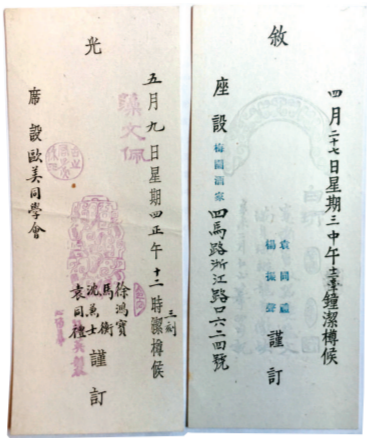 四月二十七日星期三中午十二鐘潔樽候
敘
袁同禮
楊振聲
謹訂
座設梅園酒家四馬路浙江路口六二四號
五月九日星期四正午十二時三刻潔樽候
光
徐鴻寶
馬衡
沈兼士
袁同禮
謹訂
席設歐美同學會